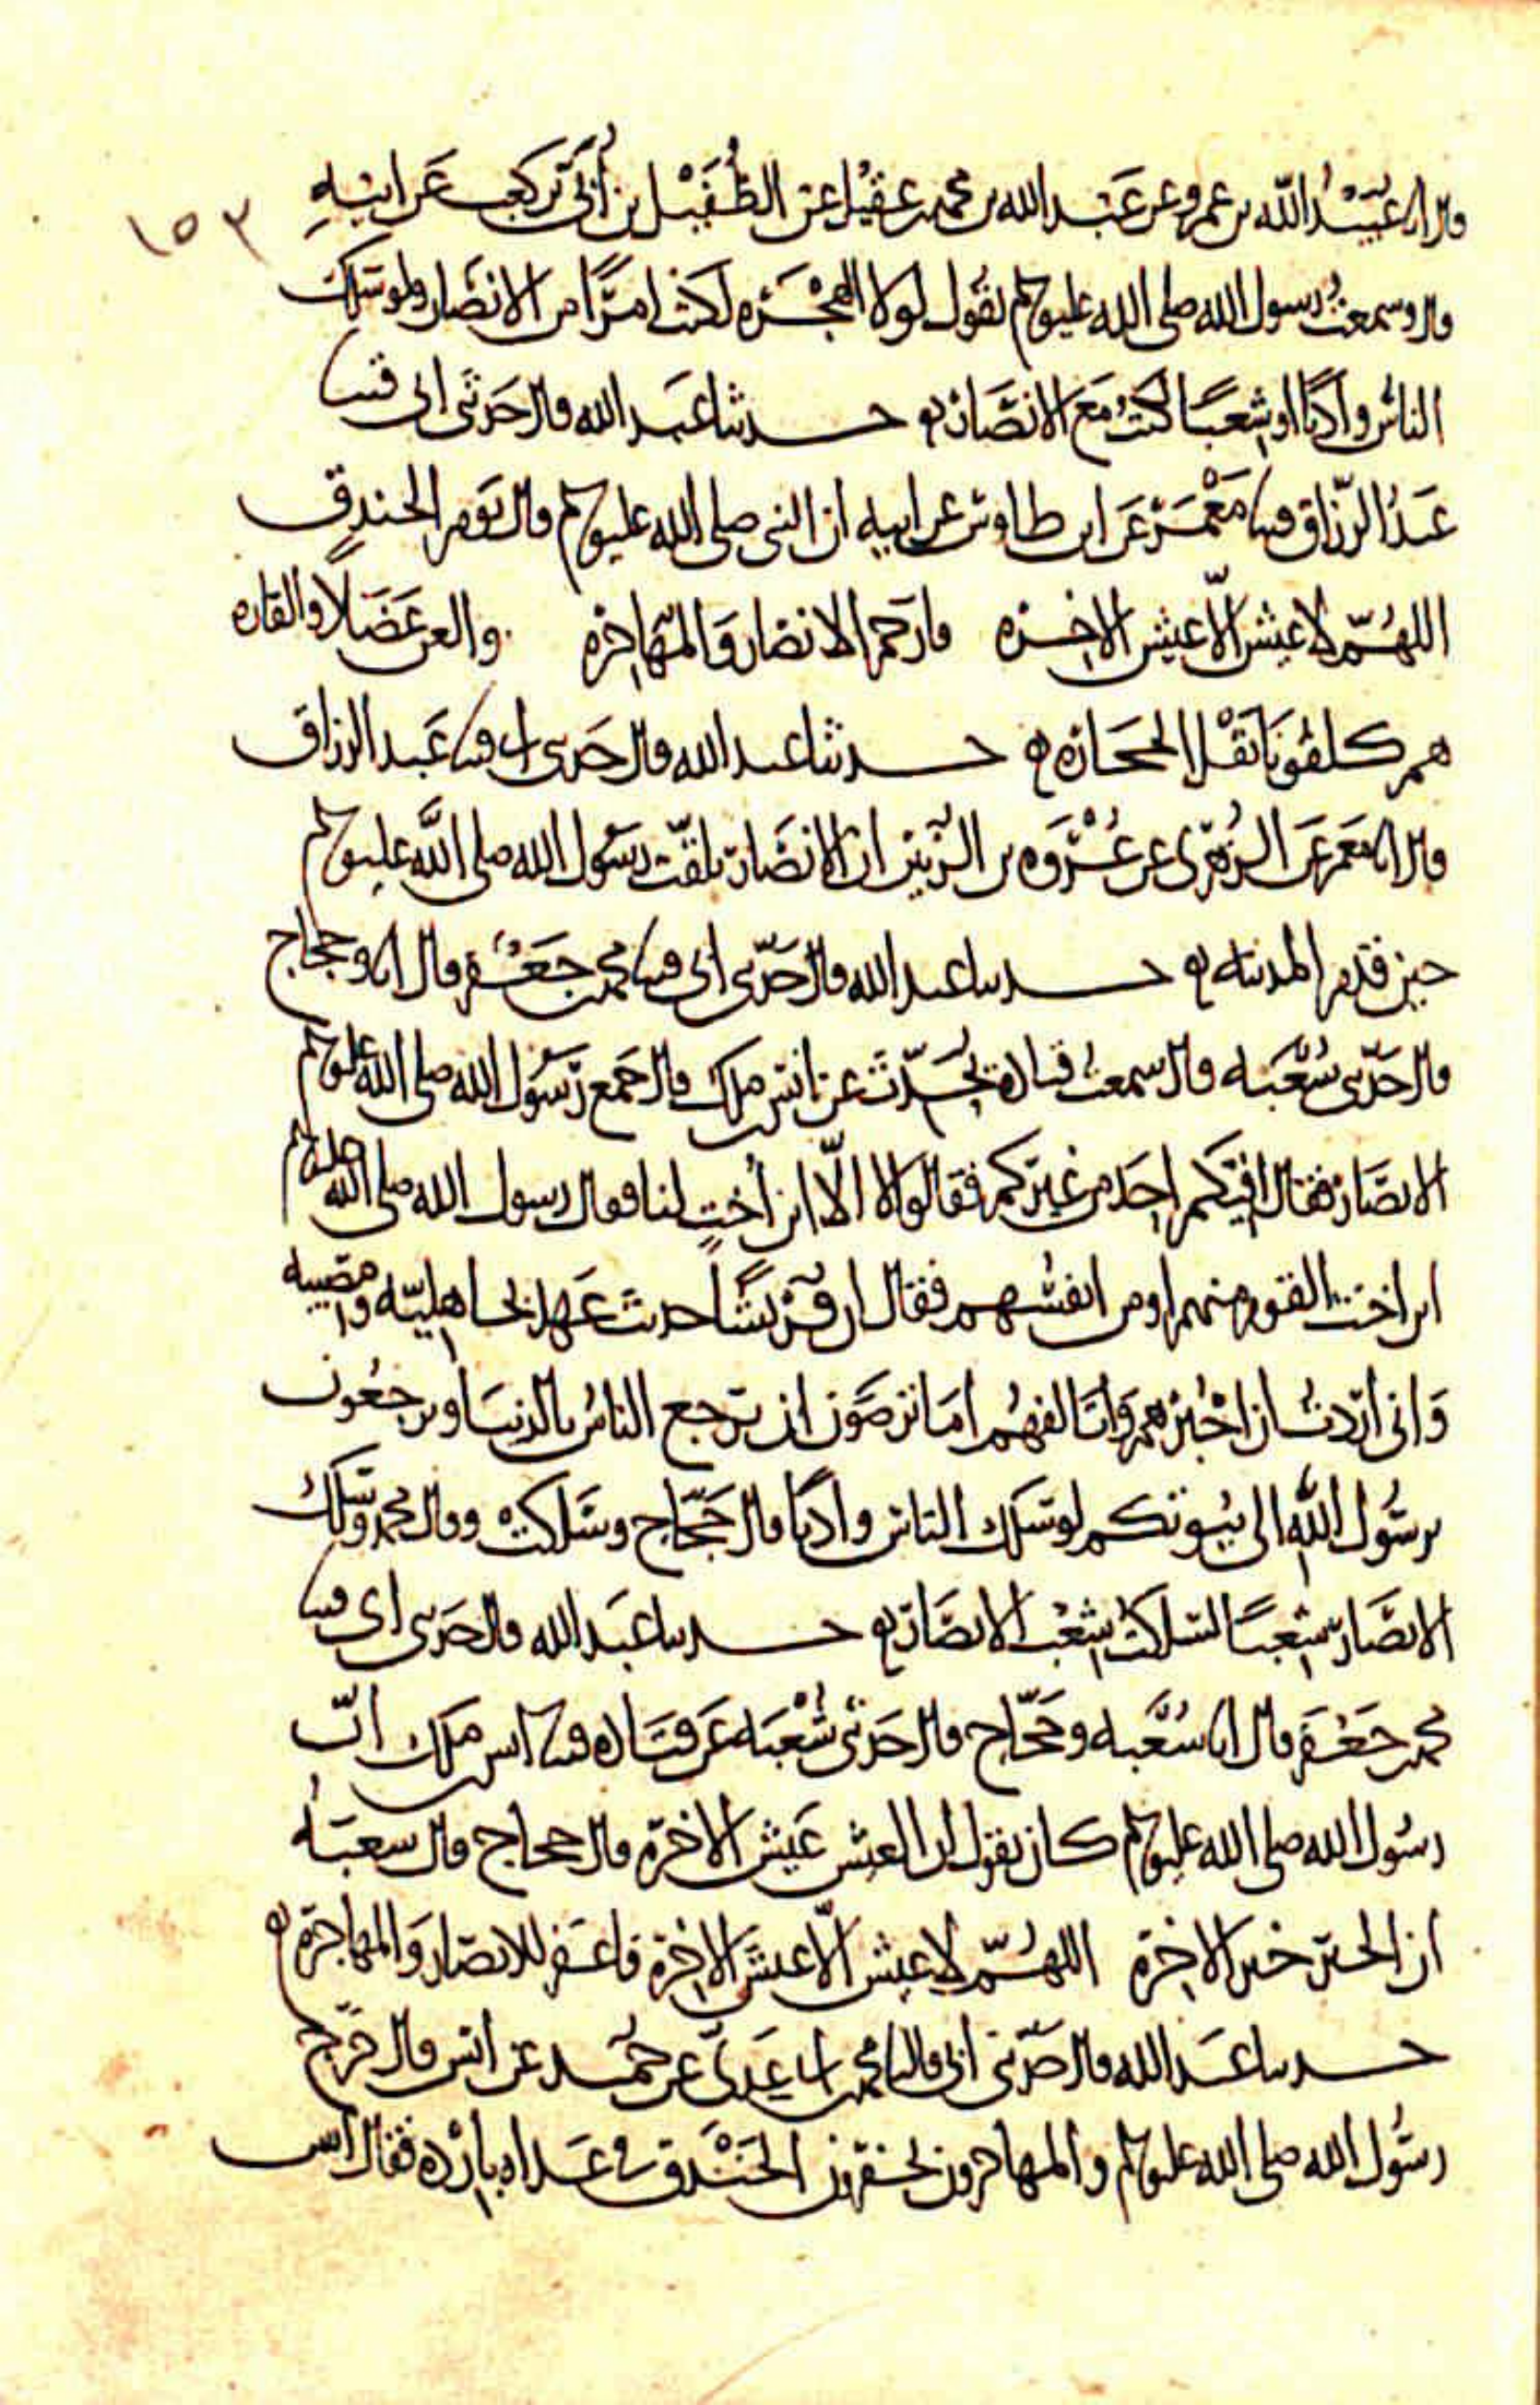 ١٥٣
قال انا عبيد الله بن عمرو عن عبد الله بن محمد بن عقيل عن الطُفَيْل بن أُبَيّ بن كعب عَن ابيهِ
قال وسمعتُ رسول الله صلى الله عليه وسلم يقُول لولا الهِجْرَه لكنتُ امرَّا من الانصَار ولو سَلك
الناسُ وادِيًا او شِعبًا لكنتُ مَع الانصَار حدثنا عَبد الله قال حَدثني ابي قثنا
عَبدُ الرزّاق قثنا مَعْمَر عَن ابن طاوس عن ابيه ان النبي صلى الله عليه وسلم قال يَوم الخندقِ
اللهُمّ لا عيش الّا عيش الاخِره فارحَم الانصَار وَالمُهَاجِره والعن عَضَلًا والقاره
هم كلفونا نَقْل الحجَارَه حدثنا عبد الله قال حَدثني ابي قثنا عَبد الرزاق
قال انا مَعمَر عَن الزُهري عن عُرْوَه بن الزُبَيْر ان الانصَار تلقّت رسُول الله صلى اللَّه عليه وسلم
حين قدم المدينه حدثنا عبد الله قال حَدّثني ابي قثنا محمد بن جَعْفر قال انا وحجاج
قال حَدّثني شُعْبَه قال سمعتُ قتادة يُحَدّث عن انس بن ملك قال جَمع رَسُول الله صلى الله عليه وسلم
الانصَار فقال افيكم احَد من غيركم فقالوا لا الّا ابن أُختٍ لنا فقال رسول الله صلى الله عليه وسلم
ابن اخت القوم منهم او من انفسهم فقال ان قُرَيشًا حديث عَهد بجاهليّه ومُصيبه
وَاني اردتُ ان اجْبُرَهم وَاتَالفهُم امَا ترضَون ان يرجع الناسُ بالدنيَا وترجعُون
برسُول اللهِ الى بُيُوتكم لو سَلك الناس وادِيًا قال حَجّاج وسَلكت وقال محمد وسَلك
الانصَار شِعبًا لسَلكتُ شِعْب الانصَار حدثنا عَبد الله قال حَدثني ابي قثنا
محمد بن جَعْفَر قال انا شُعْبه وحَجّاج قال حَدثني شُعْبَه عَن قتَاده قثنا انس بن ملك انّ
رسُول الله صلى الله عليه وسلم كان يقول ان العيش عَيش الاخرة قال حجاج قال شعبَه
ان الخير خير الاخِرة اللهُمّ لا عيش الّا عيشَ الاخِرة فاغفر للانصَار وَالمهاجرَة
حدثنا عَبد الله قال حَدّثني ابي قال انا محمد بن ابي عَدِيّ عن حُمَيد عن انس قال خرَج
رسُول الله صلى الله عليه وسلم والمهاجرون يحفرون الخَنْدق في غَداه بارْده فقال انس